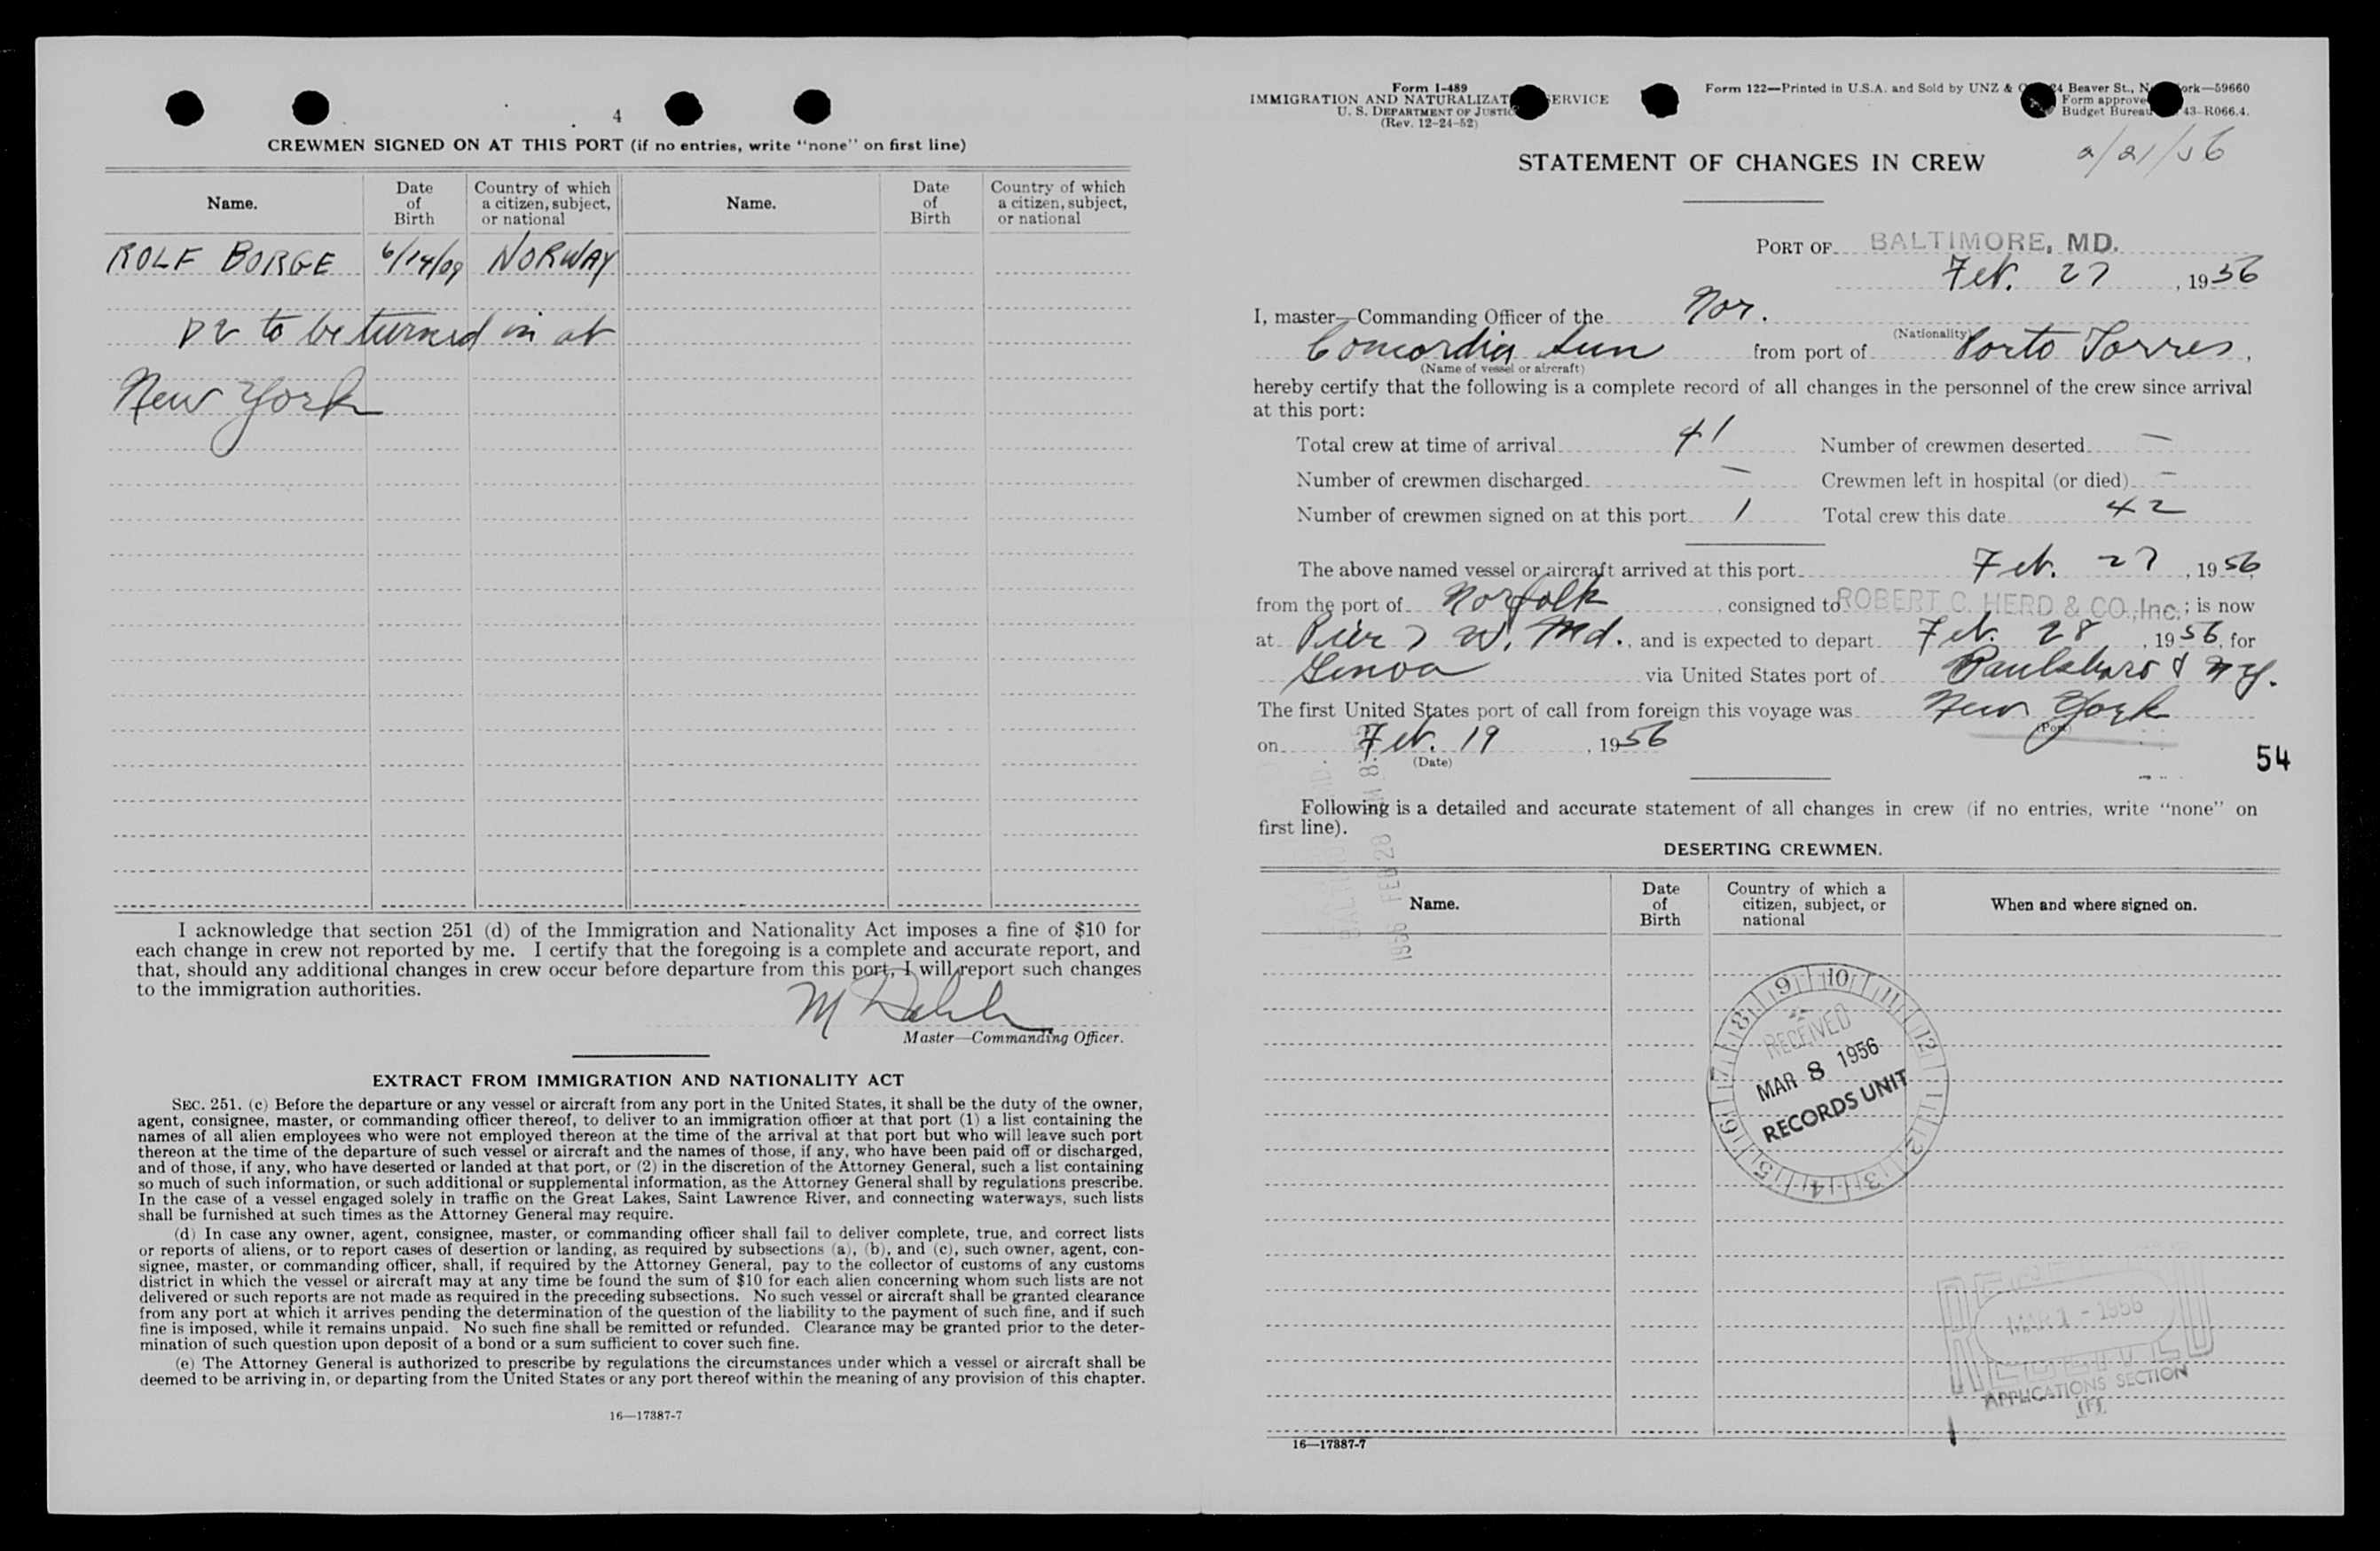 4
CREWMEN SIGNED ON AT THIS PORT (if no entries, write "none" on first line)
Name. Date of Birth Country of which a citizen, subject, or national Name. Date of Birth Country of which a citizen, subject, or national
ROLF BORGE 6/14/09 NORWAY
to be turned in at
New York
I acknowledge that section 251 (d) of the Immigration and Nationality Act imposes a fine of $10 for
each change in crew not reported by me. I certify that the foregoing is a complete and accurate report, and
that, should any additional changes in crew occur before departure from this port, I will report such changes
to the immigration authorities.
M
Master—Commanding Officer.
EXTRACT FROM IMMIGRATION AND NATIONALITY ACT
SEC. 251. (c) Before the departure or any vessel or aircraft from any port in the United States, it shall be the duty of the owner,
agent, consignee, master, or commanding officer thereof, to deliver to an immigration officer at that port (1) a list containing the
names of all alien employees who were not employed thereon at the time of the arrival at that port but who will leave such port
thereon at the time of the departure of such vessel or aircraft and the names of those, if any, who have been paid off or discharged,
and of those, if any, who have deserted or landed at that port, or (2) in the discretion of the Attorney General, such a list containing
so much of such information, or such additional or supplemental information, as the Attorney General shall by regulations prescribe.
In the case of a vessel engaged solely in traffic on the Great Lakes, Saint Lawrence River, and connecting waterways, such lists
shall be furnished at such times as the Attorney General may require.
(d) In case any owner, agent, consignee, master, or commanding officer shall fail to deliver complete, true, and correct lists
or reports of aliens, or to report cases of desertion or landing, as required by subsections (a), (b), and (c), such owner, agent, con-
signee, master, or commanding officer, shall, if required by the Attorney General, pay to the collector of customs of any customs
district in which the vessel or aircraft may at any time be found the sum of $10 for each alien concerning whom such lists are not
delivered or such reports are not made as required in the preceding subsections. No such vessel or aircraft shall be granted clearance
from any port at which it arrives pending the determination of the question of the liability to the payment of such fine, and if such
fine is imposed, while it remains unpaid. No such fine shall be remitted or refunded. Clearance may be granted prior to the deter-
mination of such question upon deposit of a bond or a sum sufficient to cover such fine.
(e) The Attorney General is authorized to prescribe by regulations the circumstances under which a vessel or aircraft shall be
deemed to be arriving in, or departing from the United States or any port thereof within the meaning of any provision of this chapter.
16—17887-7
Form I-489
IMMIGRATION AND NATURALIZAT ERVICE
U. S. DEPARTMENT OF JUSTIC
(Rev. 12-24-52)
Form 122—Printed in U.S.A. and Sold by UNZ & 24 Beaver St., N ork—59660
Form approve
Budget Bureau 43-R066.4.
2/21/56
STATEMENT OF CHANGES IN CREW
PORT OF BALTIMORE, MD.
Feb. 27, 1956
I, master—Commanding Officer of the Nor.
(Nationality)
Concordia Sun from port of Porto Torres,
(Name of vessel or aircraft)
hereby certify that the following is a complete record of all changes in the personnel of the crew since arrival
at this port:
Total crew at time of arrival 41 Number of crewmen deserted —
Number of crewmen discharged — Crewmen left in hospital (or died) —
Number of crewmen signed on at this port 1 Total crew this date 42
The above named vessel or aircraft arrived at this port Feb. 27, 1956
from the port of Norfolk, consigned to ROBERT C. HERD & CO., Inc.; is now
at Pier 7 W. Md., and is expected to depart Feb. 28, 1956, for
Genoa via United States port of Paulsboro & NY.
The first United States port of call from foreign this voyage was New York
(Port)
on Feb. 19, 1956
(Date)
54
Following is a detailed and accurate statement of all changes in crew (if no entries, write "none" on
first line).
1956 FEB 28
DESERTING CREWMEN.
Name. Date of Birth Country of which a citizen, subject, or national When and where signed on.
9 10 11 12 1 2 3 4 5 6 7 8
RECEIVED
MAR 8 1956
RECORDS UNIT
RECEIVED
MAR 1 - 1956
APPLICATIONS SECTION
16—17887-7